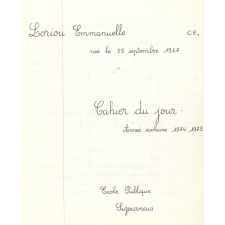 Loriou Emmanuelle C E1
née le 25 septembre 1967
Cahier du jour
Année scolaire 1974_1975
Ecole Publique
Sigournais